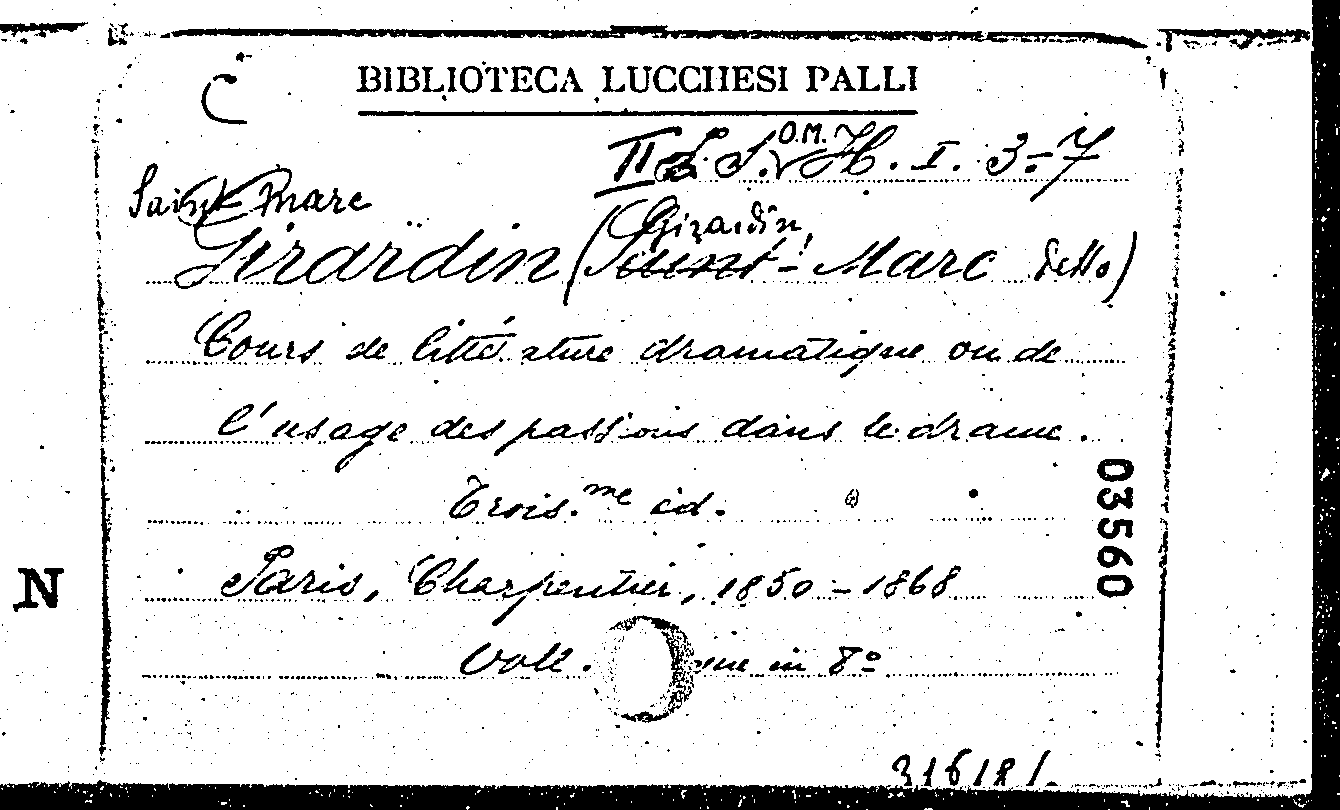 C
BIBLIOTECA LUCCHESI PALLI
II S. O.M. H. I. 3-7
Saint Marc
Girardin (Girardin, Saint-Marc detto)
Cours de littérature dramatique ou de
l'usage des passions dans le drame.
Trois.me éd.
03560
N
Paris, Charpentier, 1850-1868
Voll. in 8º